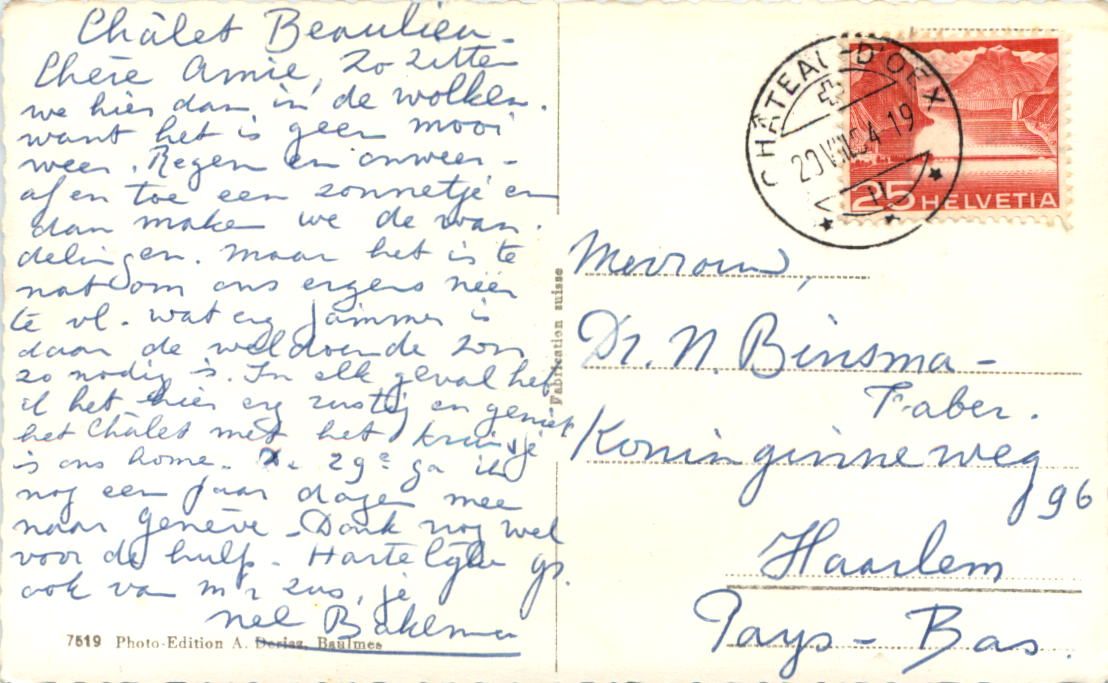 Châlet Beaulieu -
Chère Amie, Zo zitten
we hier dan in de wolken.
want het is geen mooi
weer. Regen en onweer -
af en toe een zonnetje en
dan maken we de wan.
delingen. Maar het is te
nat om ons ergens neer
te vl. wat erg jammer is
daar de weldoende zon
zo nodig is. In elk geval heb
ik het hier erg rustig en geniet
het Châlet met het kruisje
is ons home. De 29e ga ik
nog een paar dagen mee
naar Genève - Dank nog wel
voor de hulp. Hartelijke gr.
ook van m'n zus, je
Nel Bakema
7519 Photo-Edition A. Deriaz, Baulmes
Fabrication suisse
CHÂTEAU-D'OEX
20 VIII 54 19
25 HELVETIA
Mevrouw,
Dr. N. Binsma -
Faber.
Koninginneweg
96
Haarlem
Pays-Bas.